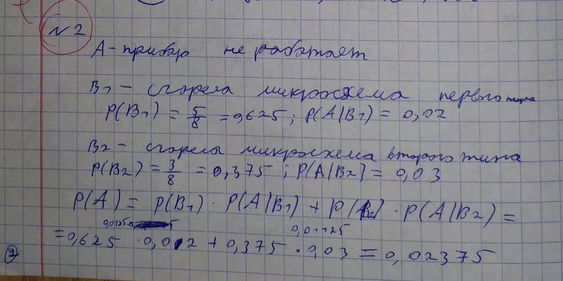 №2
А - прибор не работает
B₁ - сгорела микросхема первого типа
P(B₁) = 5/8 = 0,625 ; P(A|B₁) = 0,02
B₂ - сгорела микросхема второго типа
P(B₂) = 3/8 = 0,375 ; P(A|B₂) = 0,03
P(A) = P(B₁) · P(A|B₁) + P(B₂) · P(A|B₂) =
0,01125
= 0,625 · 0,02 + 0,375 · 0,03 = 0,02375